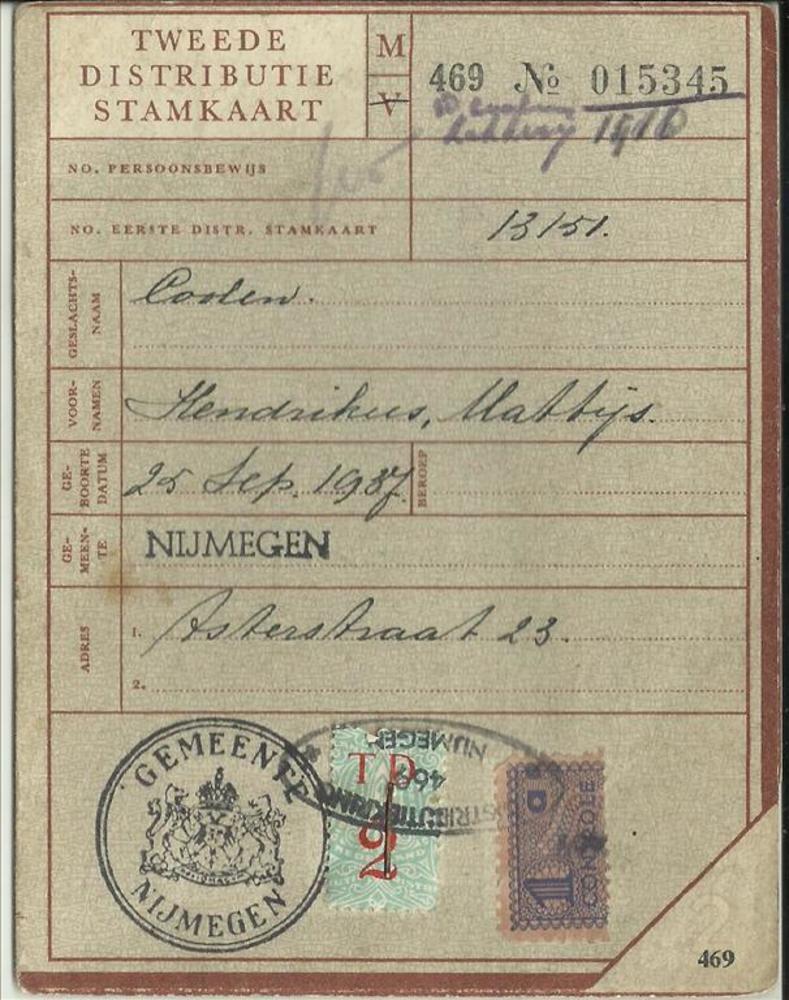 TWEEDE
DISTRIBUTIE
STAMKAART
M
V
469 № 015345
1916
NO. PERSOONSBEWIJS
NO. EERSTE DISTR. STAMKAART
13151.
GESLACHTS-
NAAM
Coolen.
VOOR-
NAMEN
Hendrikus, Mattijs.
GE-
BOORTE
DATUM
25 Sep. 1937
BEROEP
GE-
MEEN-
TE
NIJMEGEN
ADRES
1. Asterstraat 23.
2.
GEMEENTE
NIJMEGEN
NIJMEGEN
469
DISTRIBUTIEKRING
T D
2
1
a
CONTROLE
469